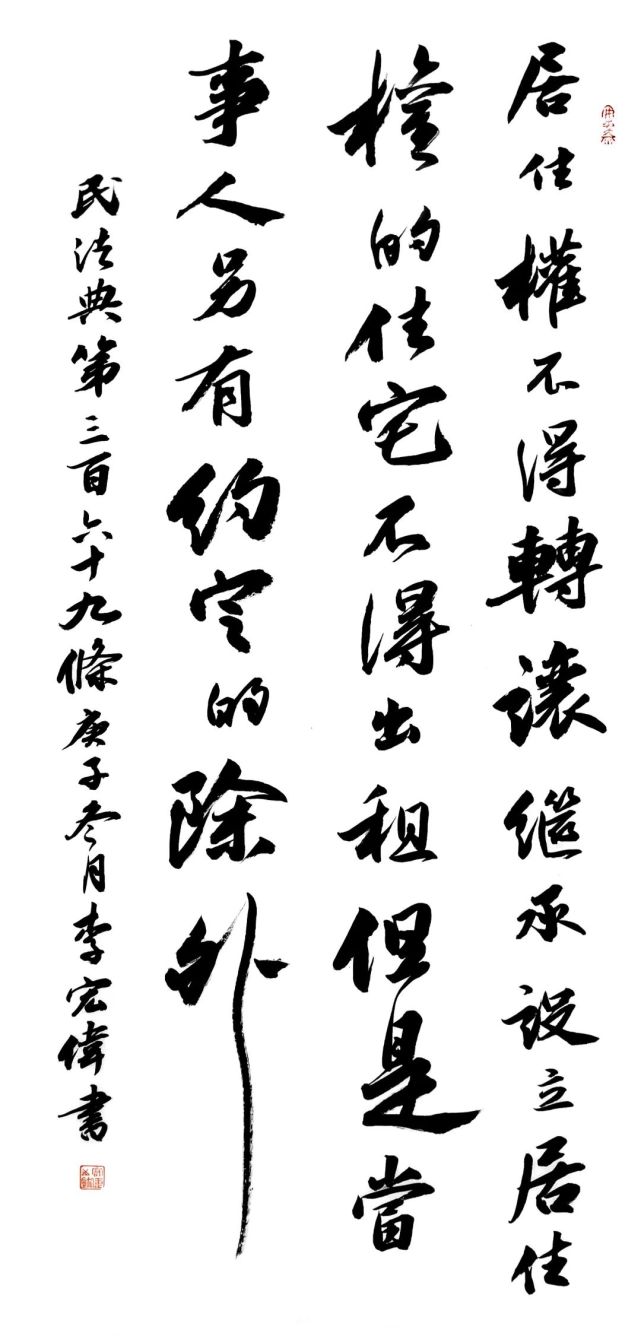 居住權不得轉讓繼承設立居住
權的住宅不得出租但是當
事人另有約定的除外
民法典第三百六十九條庚子冬月李宏偉書